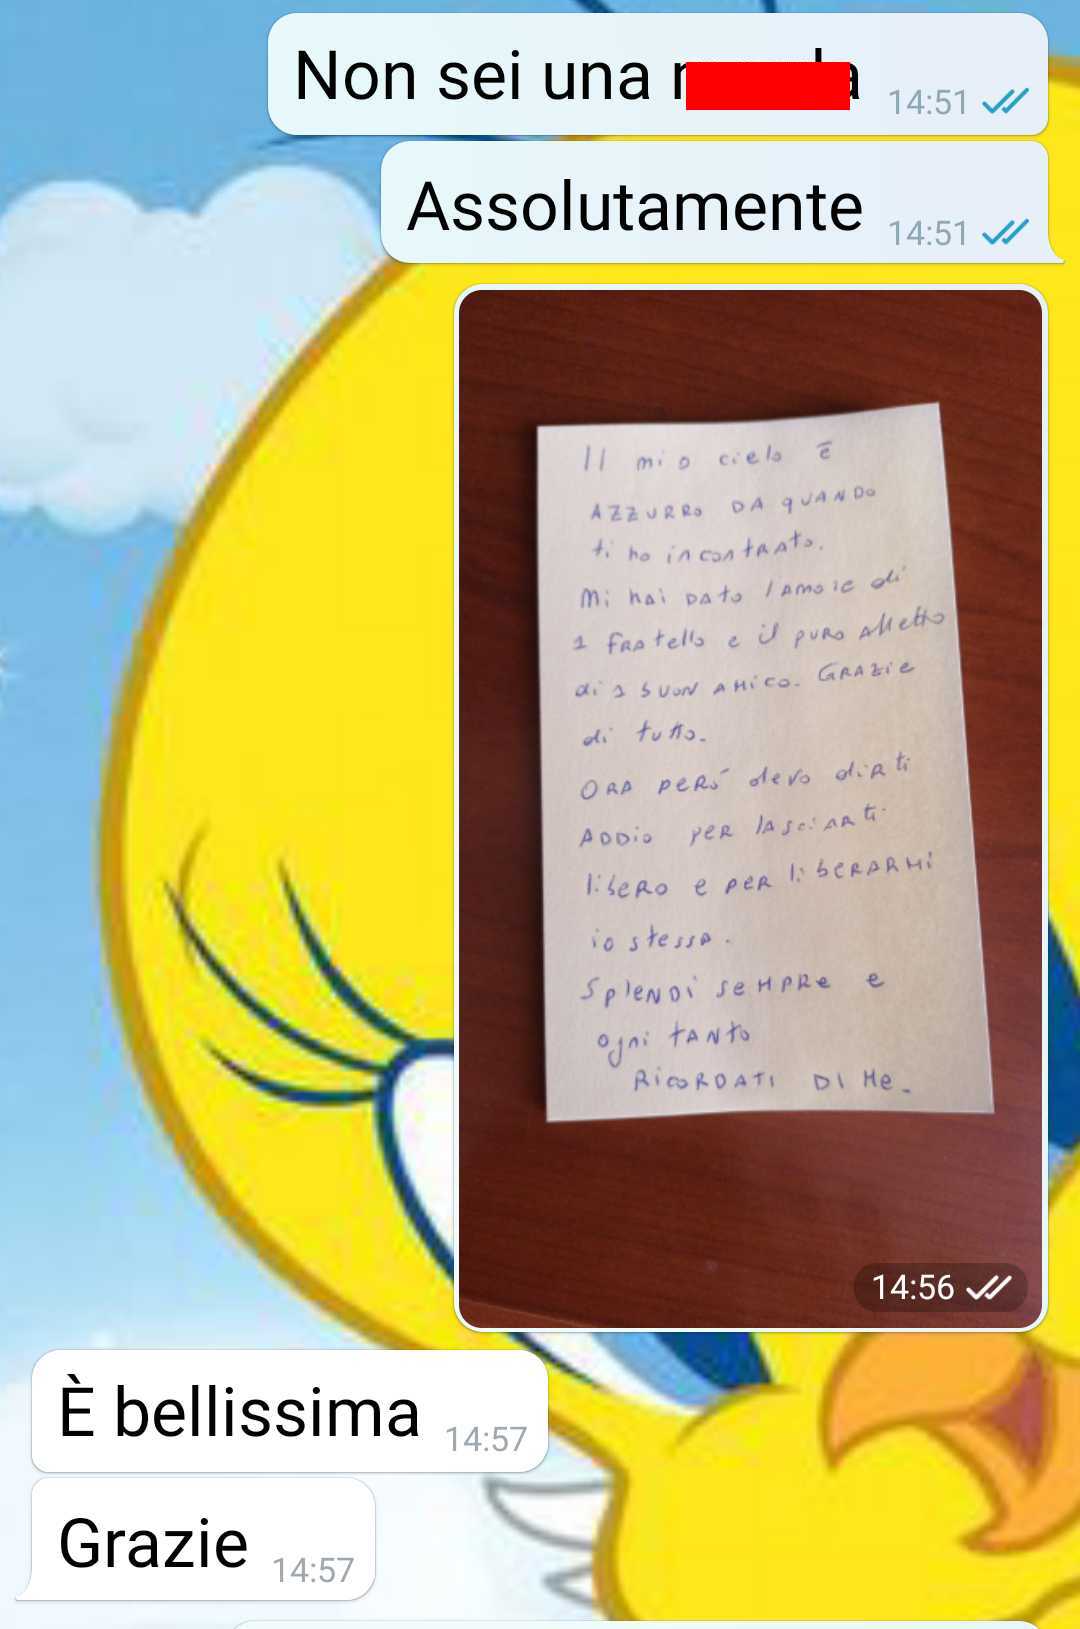 Non sei una
14:51
Assolutamente
14:51
Il mio cielo è
AZZURRO DA QUANDO
ti ho incontrato.
Mi hai dato l'amore di
1 fratello e il puro affetto
di 1 buon amico. Grazie
di tutto.
Ora però devo dirti
addio per lasciarti
libero e per liberarmi
io stessa.
Splendi sempre e
ogni tanto
RICORDATI DI Me.
14:56
È bellissima
14:57
Grazie
14:57